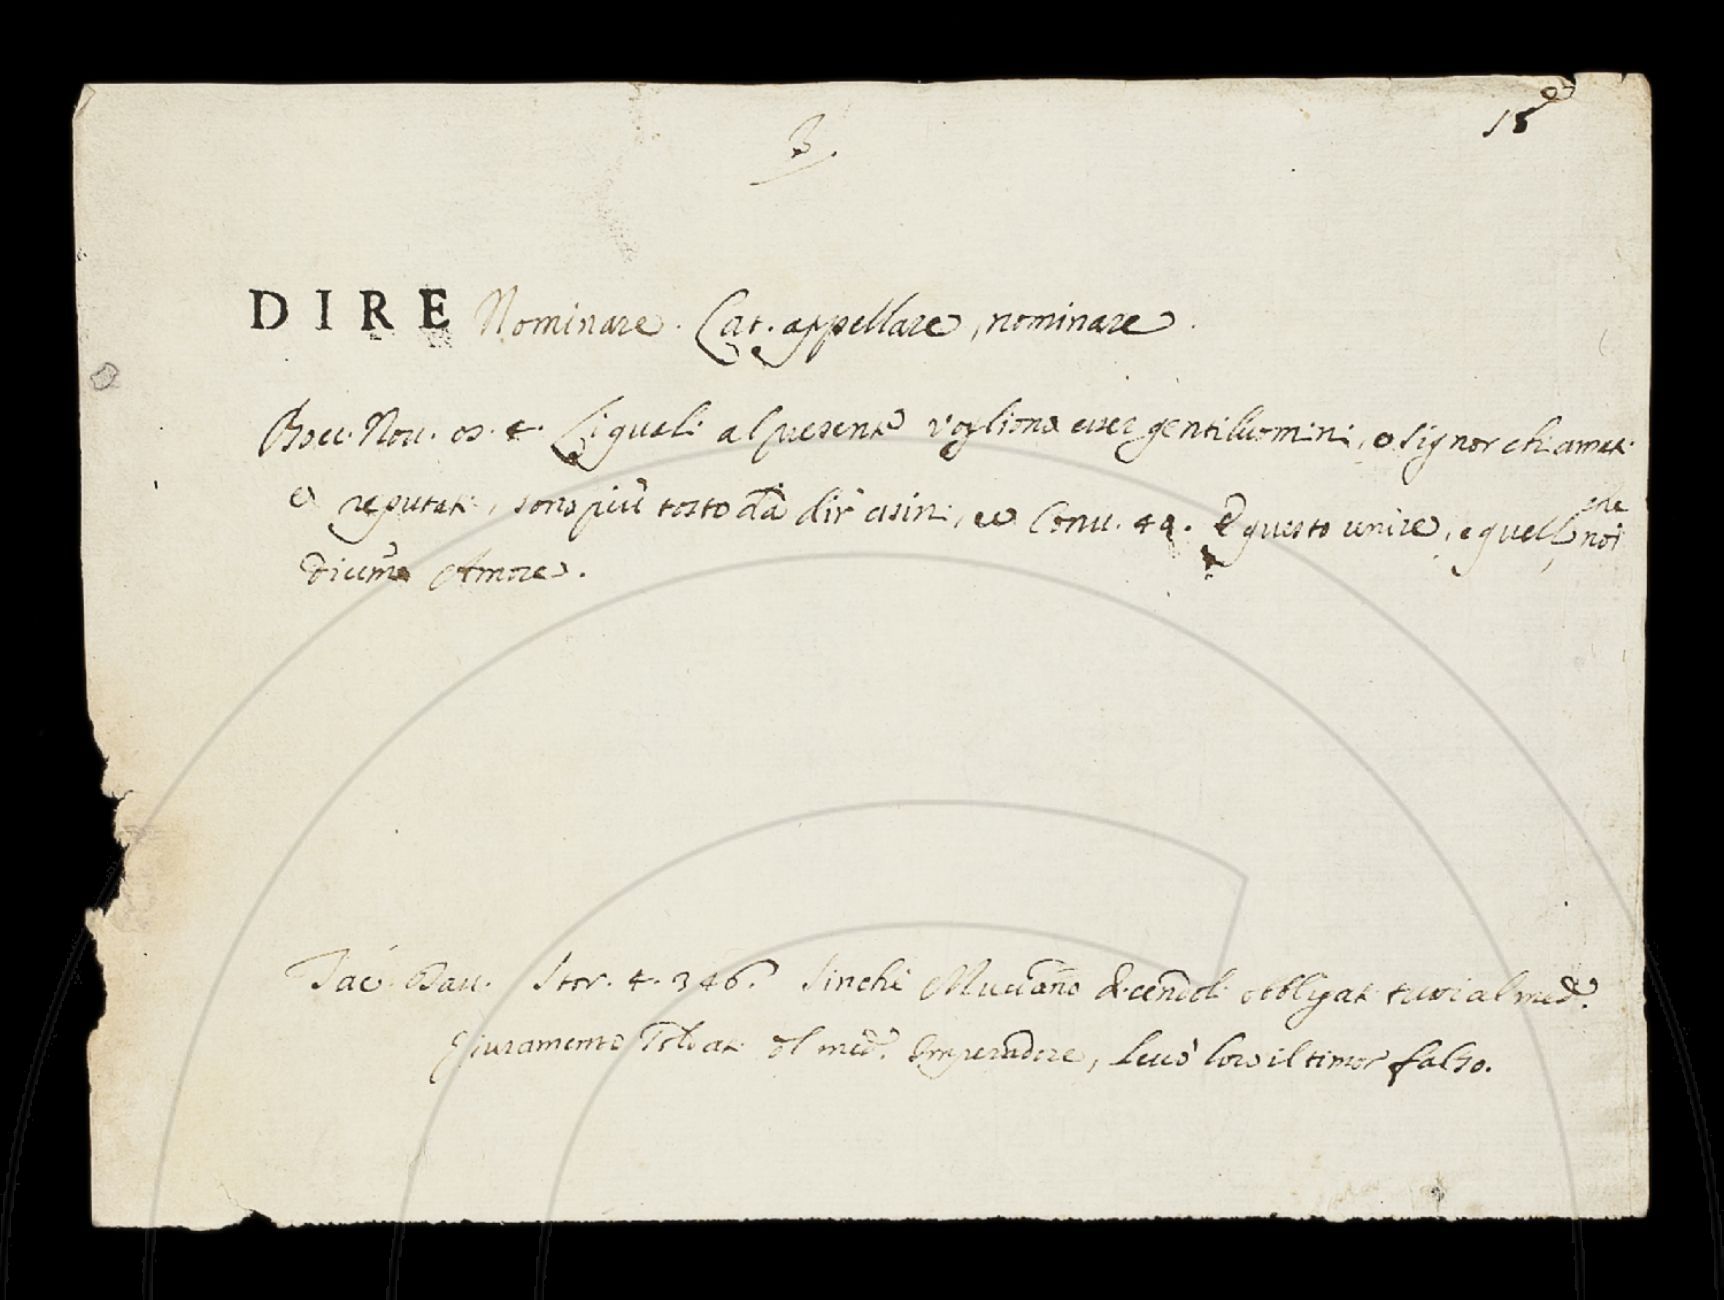 3.
15
DIRE Nominare. Lat. appellare, nominare.
Bocc. Nov. 4. Li quali al presente vogliono esser gentiluomini, e signor chiamati
e reputati, sono più tosto da dir asini, ec. Conv. E questo unire, è quello che noi
dicemo Amore.
Tac. Dav. Stor. 4. 346. Sinchè Muciano dicendoli obbligati tutti al med.
giuramento soldati al med. Imperadore, levò loro il timor falso.